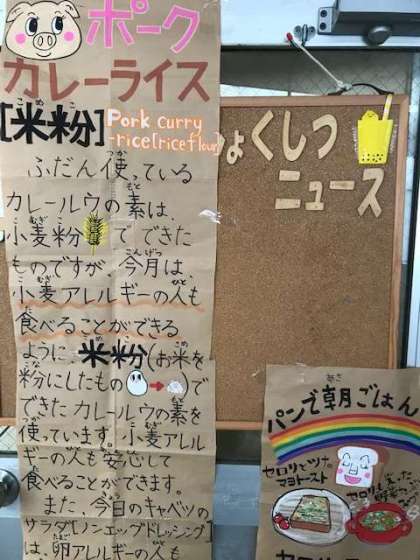 ポーク
カレーライス
[米粉]
こめこ
Pork curry
-rice[rice flour]
ふだん使っている
カレールウの素は、
小麦粉でできた
ものですが、今月は、
小麦アレルギーの人も
食べることができる
ように、米粉(お米を
粉にしたもの → )で
できたカレールウの素を
使っています。小麦アレル
ギーの人も安心して
食べることができます。
また、今日のキャベツの
サラダ[ノンエッグドレッシング]
は、卵アレルギーの人も
ょくしつ
ニュース
パンで朝ごはん
セロリとツナの
マヨトースト